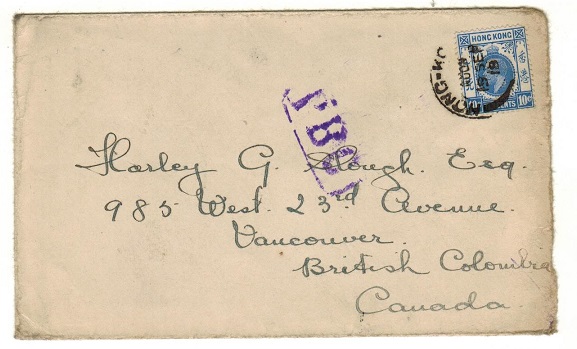 HONG KONG
10c CENTS 10c
HONG-KO
NOON
15 SE
19
Harley G. Slough. Esq.
985 West. 23rd Avenue.
Vancouver.
British Colombia
Canada.